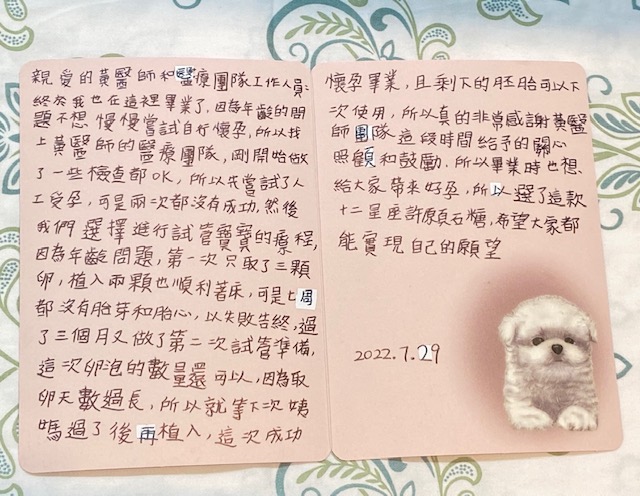 親愛的黃醫師和醫療團隊工作人員:
終於我也在這裡畢業了,因為年齡的問
題不想慢慢嘗試自行懷孕,所以找
上黃醫師的醫療團隊,剛開始做
了一些檢查都OK,所以先嘗試了人
工受孕,可是兩次都沒有成功,然後
我們選擇進行試管寶寶的療程,
因為年齡問題,第一次只取了三顆
卵,植入兩顆也順利著床,可是七周
都沒有胎芽和胎心,以失敗告終,過
了三個月又做了第二次試管準備,
這次卵泡的數量還可以,因為取
卵天數過長,所以就等下次姨
媽過了後再植入,這次成功
懷孕畢業,且剩下的胚胎可以下
次使用,所以真的非常感謝黃醫
師團隊這段時間給予的關心
照顧和鼓勵.所以畢業時也想
給大家帶來好孕,所以選了這款
十二星座許願石糖,希望大家都
能實現自己的願望
2022.7.29